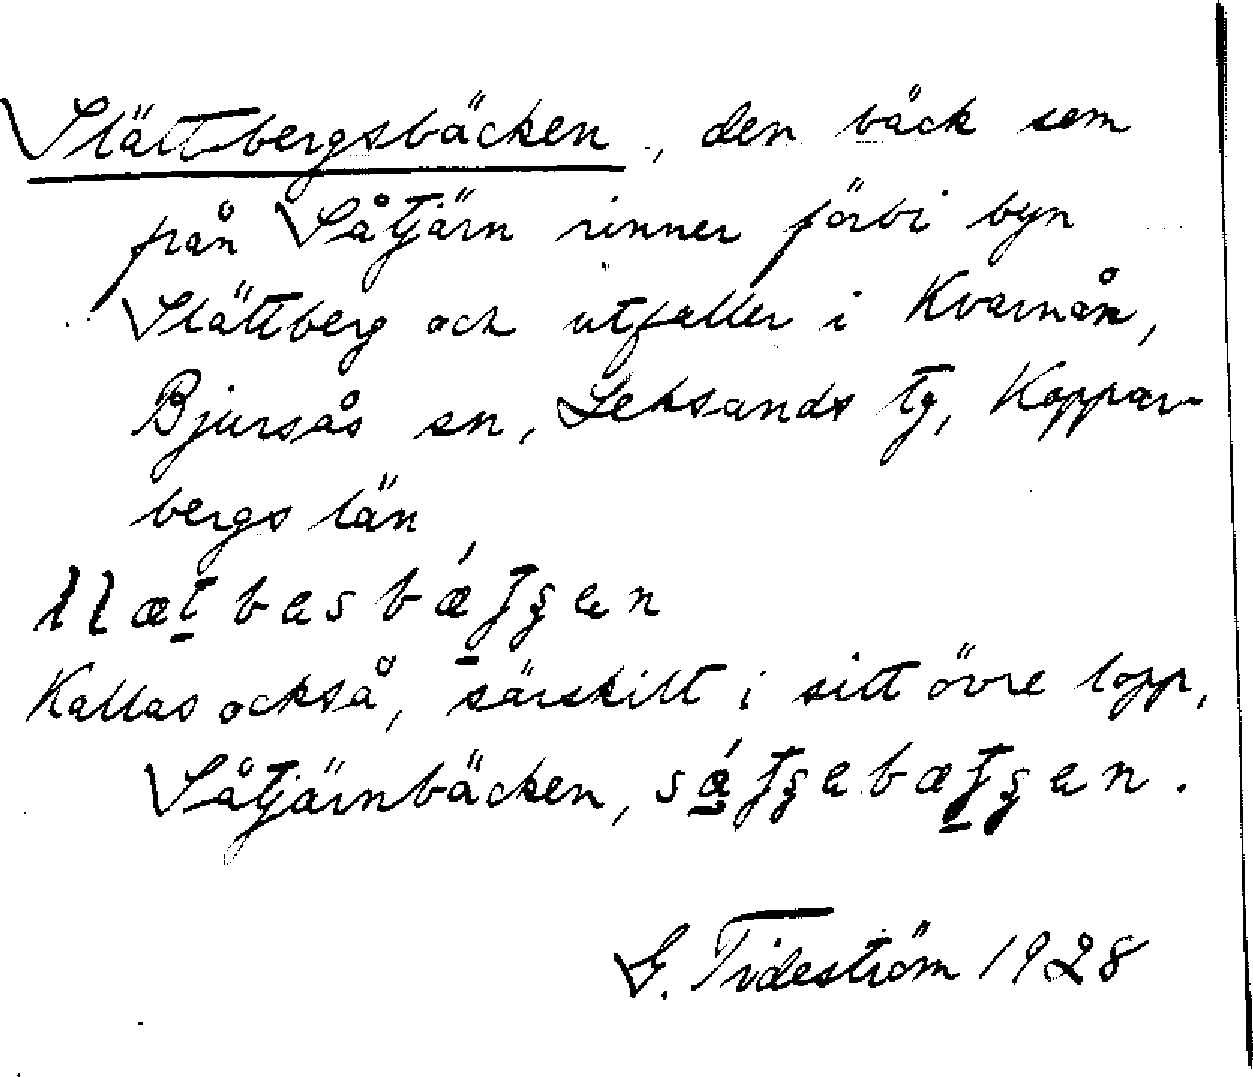 Slättbergsbäcken, den bäck som
från Såtjärn rinner förbi byn
Slättberg och utfaller i Kvarnån,
Bjursås sn, Leksands tg, Koppar-
bergs län
Kallas också, särskilt i sitt övre lopp,
Såtjärnbäcken,
G. Tideström 1928